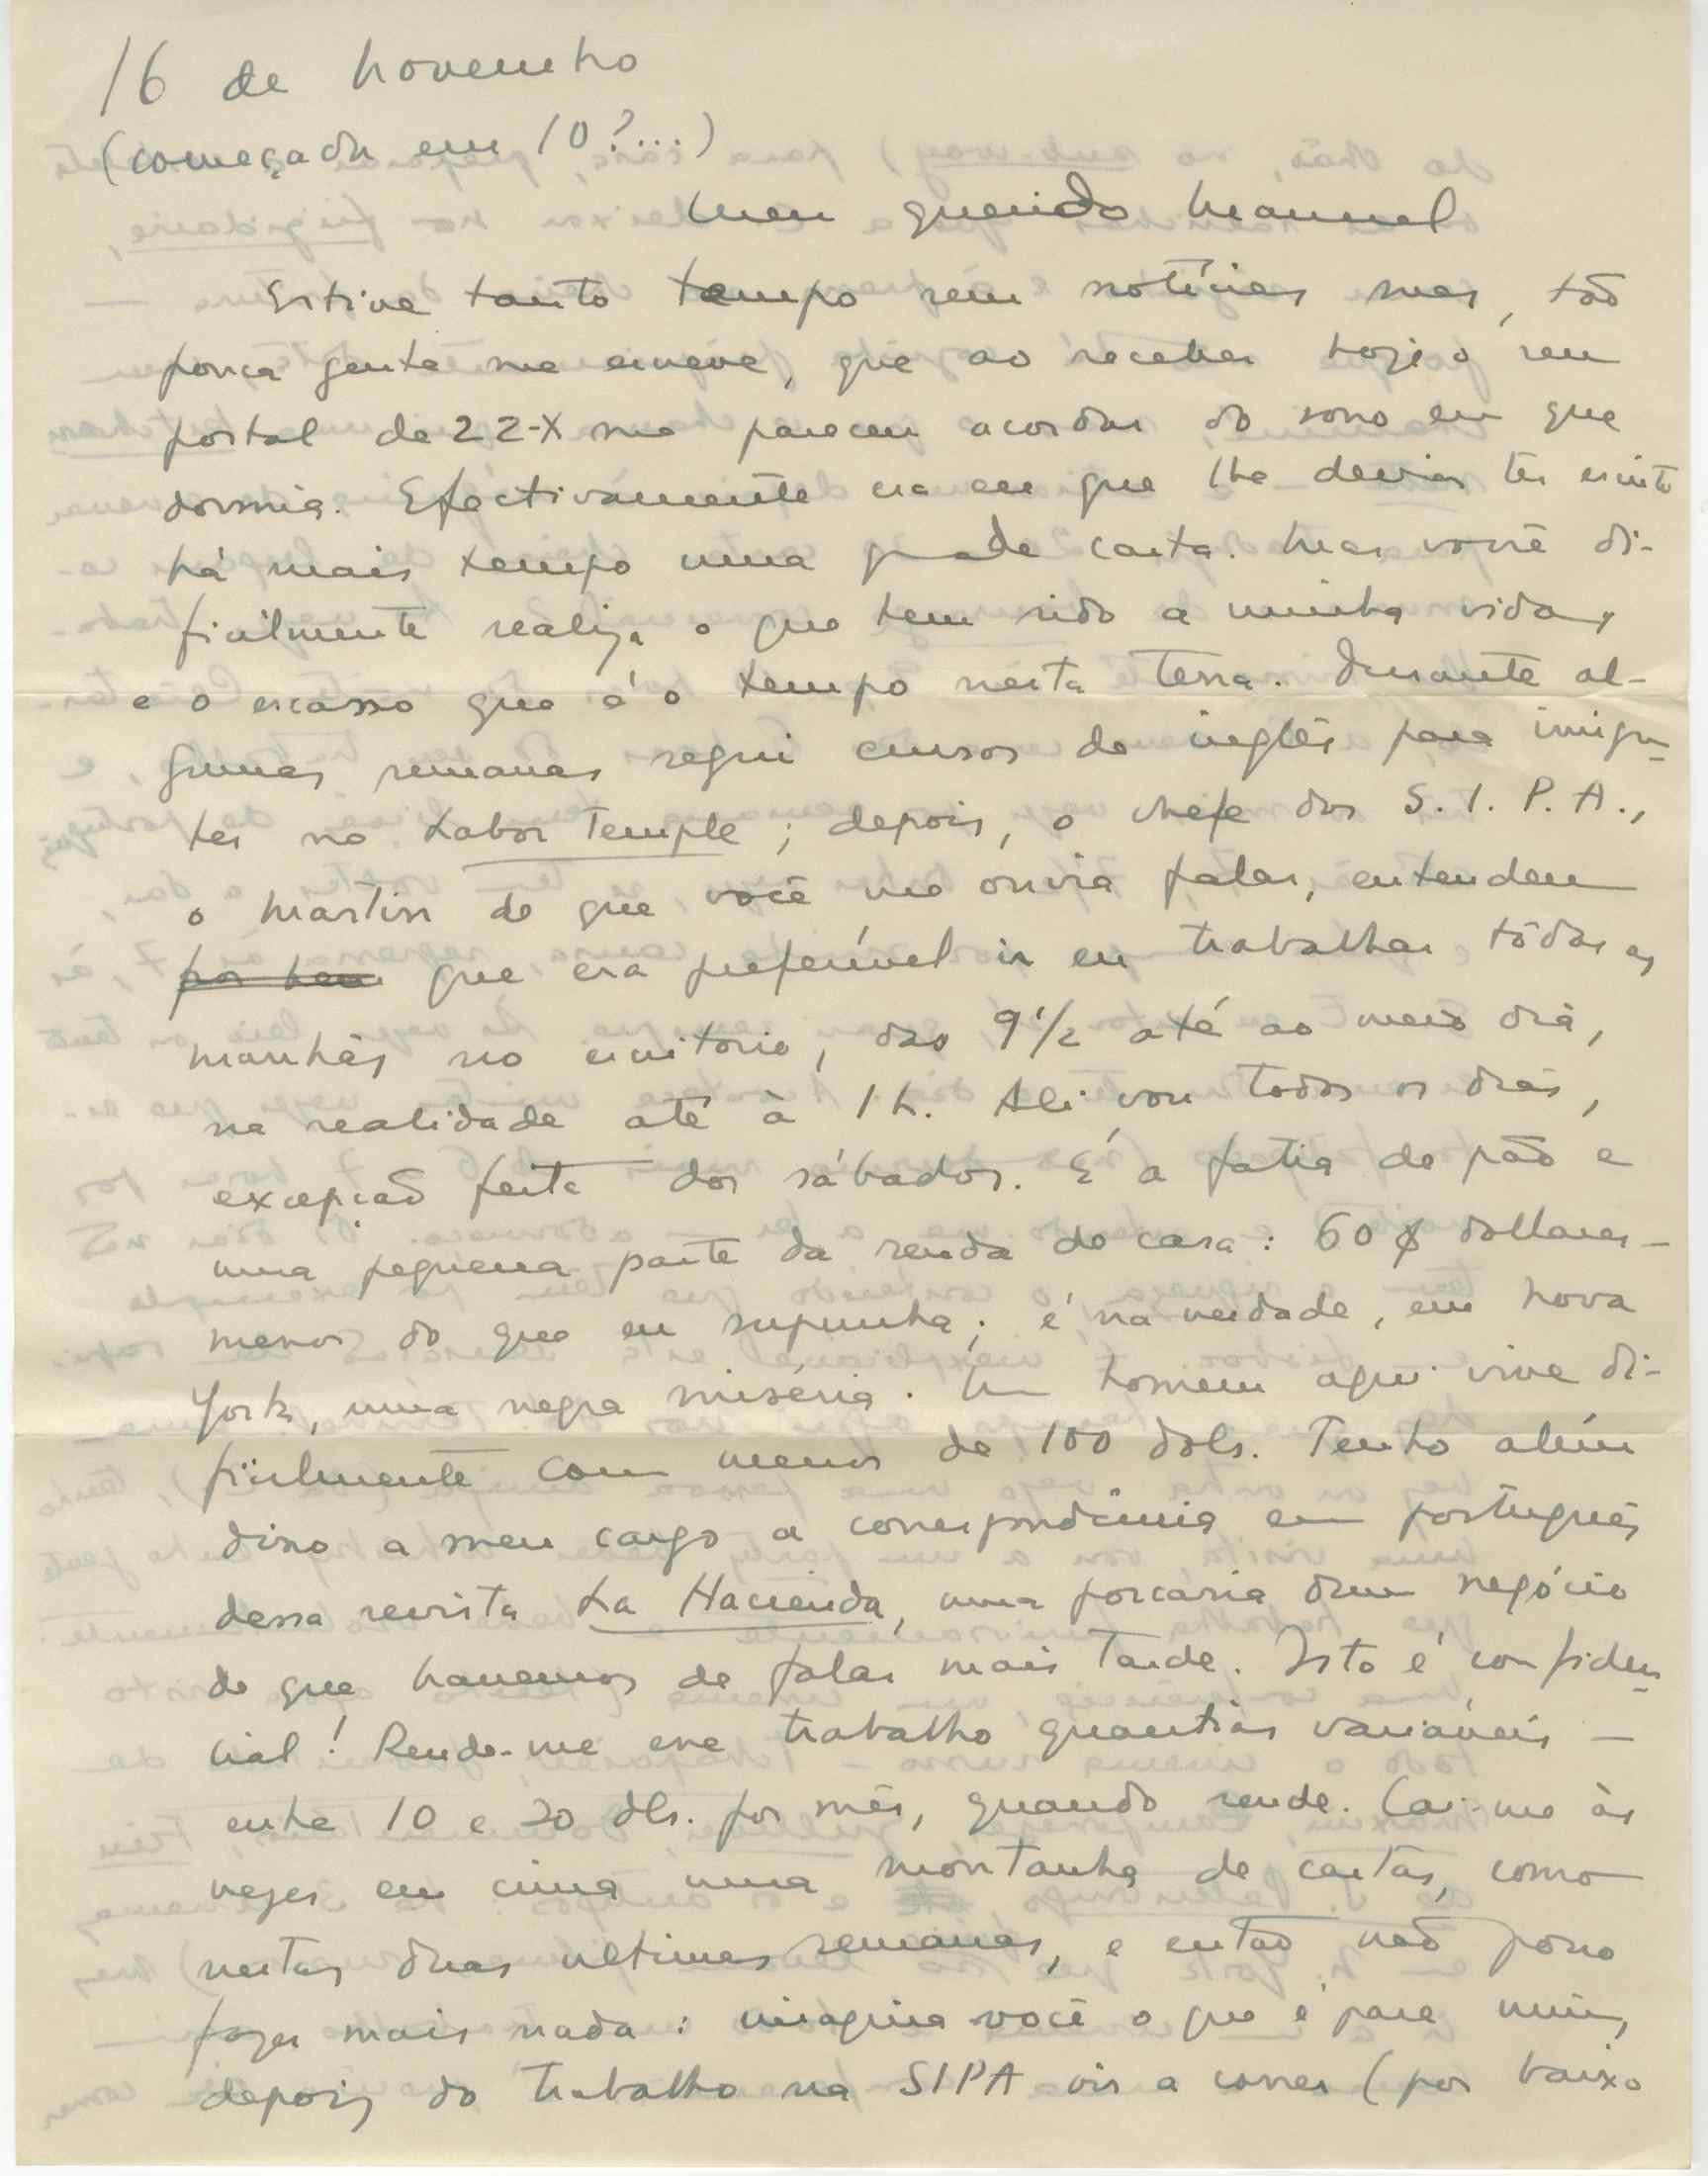 16 de novembro
(começada em 10?...)
Meu querido Manuel
Estive tanto tempo sem notícias suas, tão
pouca gente me escreve, que ao receber hoje o seu
postal de 22-X me pareceu acordar do sono em que
dormia. Efectivamente era eu que lhe devia ter escrito
há mais tempo uma grande carta. Mas você di-
ficilmente realiza o que tem sido a minha vida,
e o escasso que é o tempo nesta terra. Durante al-
gumas semanas segui cursos de inglês para imigran-
tes no Labor Temple; depois, o chefe dos S.I.P.A.,
o Martin de que você me ouvia falar, entendeu
por bem que era preferível ir eu trabalhar tôdas as
manhãs no escritorio, das 9 1/2 até ao meio dia,
na realidade até à 1 h. Ali vou todos os dias,
excepção feita dos sábados. É a fatia de pão e
uma pequena parte da renda de casa: 60 $ dollares -
menos do que eu supunha; é na verdade, em Nova
York, uma negra miséria. Um homem aqui vive di-
ficilmente com menos de 100 dols. Tenho além
disso a meu cargo a correspondência em português
dessa revista La Hacienda, uma porcaria dum negócio
de que havemos de falar mais tarde. Isto é confiden-
cial! Rende-me esse trabalho quantias variáveis —
entre 10 e 20 dls. por mês, quando rende. Cai-me às
vezes em cima uma montanha de cartas, como
nestas duas ultimas semanas, e então não posso
fazer mais nada: imagina você o que é para mim,
depois do trabalho na SIPA vir a correr (por baixo